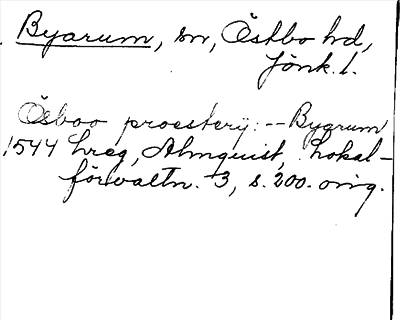 Byarum, sn, Östbo hd,
Jönk. l.
Ösboo proestery: -- Byarum
1544 hreg, Almquist, Lokal-
förvaltn. 3, s. 200. orig.